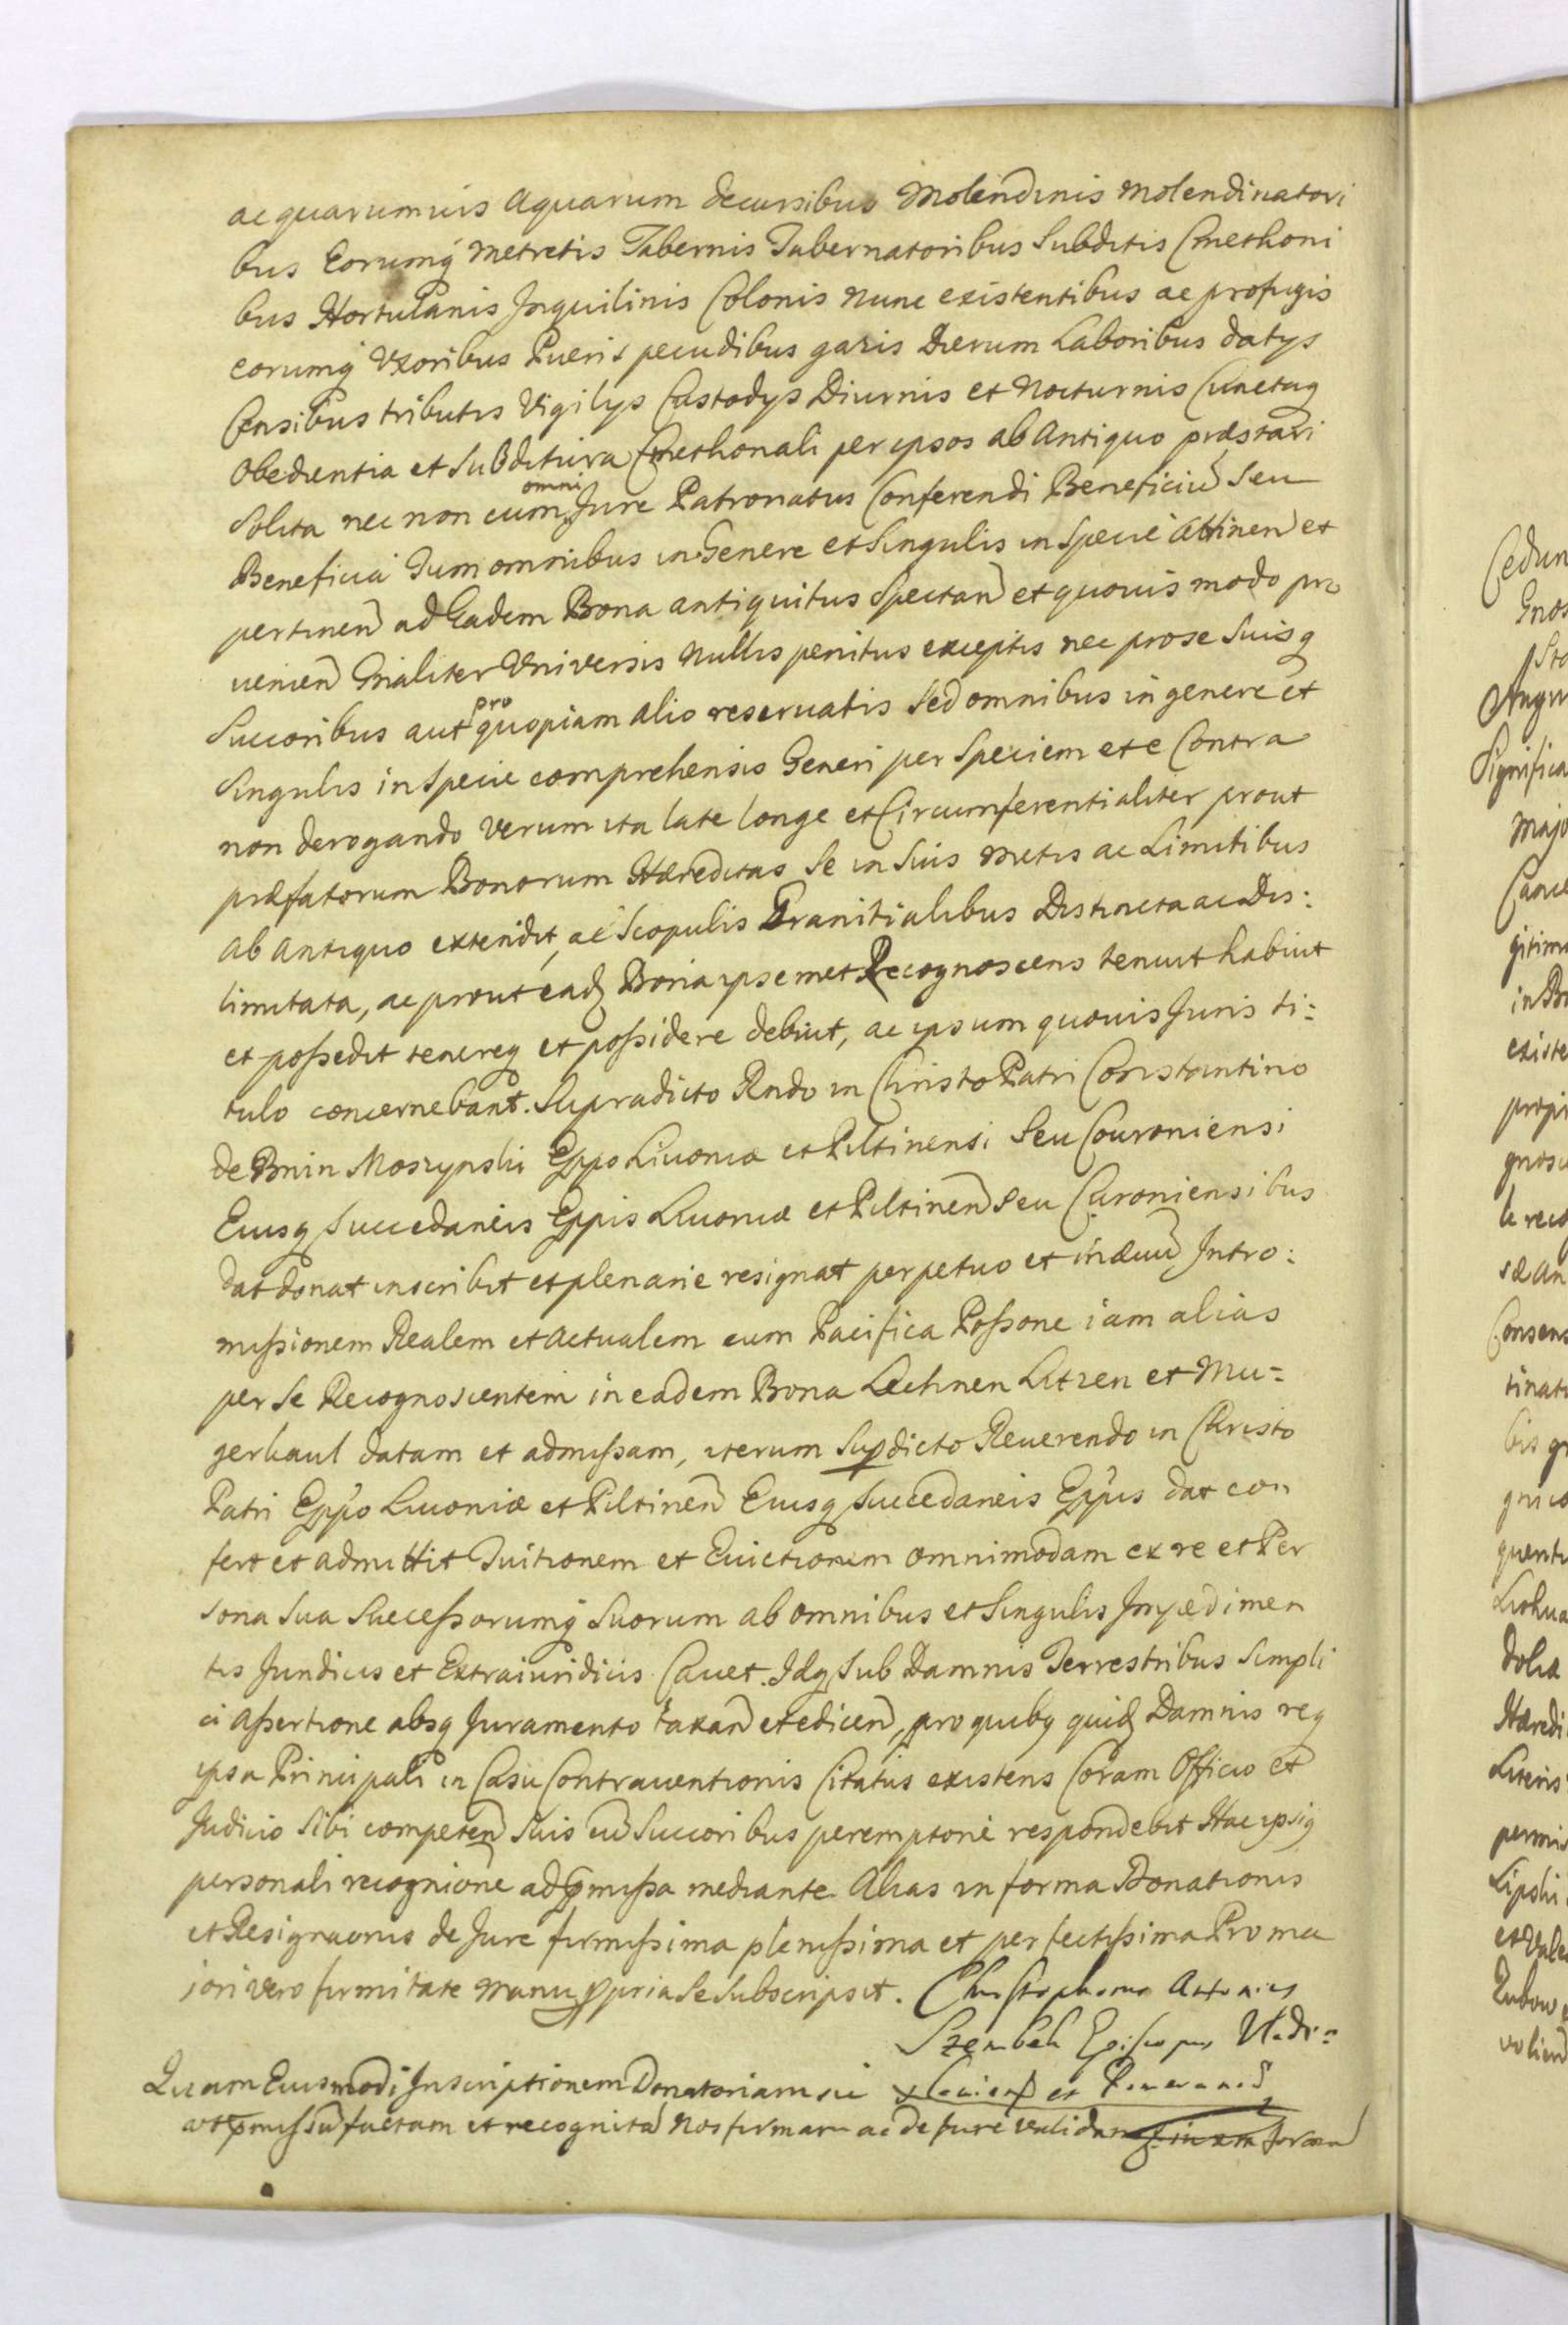 ac quarumvis Aquarum decursibus Molendinis Molendinatori
bus Eorumq Metretis Tabernis Tabernatoribus Subditis Cmethoni
bus Hortulanis Inquilinis Colonis Nunc existentibus ac profugis
eorumq Uxoribus Pueris pecudibus gazis Dierum Laboribus datys
Censibus tributis Vigilys Custodys Diurnis et Nocturnis Cunctaq
Obedientia et Subditiva Cmethonali per ipsos ab Antiquo præstari
Solita nec non cum omni Jure Patronatus Conferendi Beneficiũ Seu
Beneficia Tum omnibus in Genere et Singulis in Specie Attinen et
pertinen ad Eadem Bona antiquitus Spectan et quovis modo pro
uenien Gnãliter Vniversis Nullis penitus exceptis nec pro se Suisq
Succoribus aut pro quopiam alio reseruatis Sed omnibus in genere et
Singulis in Specie comprehensis Generi per Speciem et e Contra
non derogando Verum ita late longe et Circumferentialiter prout
præfatorum Bonorum Hæreditas Se in Suis Metis ac Limitibus
ab Antiquo extendit, ac Scopulis Granitialibus Distincta ac Dis:
limitata, ac prout ead Bona ipsemet Recognoscens tenuit habuit
et possedit tenereq et possidere debuit, ac ipsum quouis Juris ti:
tulo concernebant. Supradicto Rndo in Christo Patri Constantino
de Bnin Moszynski Eppo Liuoniæ et Piltinensi Seu Couroniensi
Eiusq Succedaneis Eppis Liuoniæ et Piltinen Seu Curoniensibus
dat donat inscribit et plenarie resignat perpetuo et in æuũ Intro:
missionem Realem et Actualem cum Pacifica Possone iam alias
per Se Recognoscentem in eadem Bona Lechnen Litzen et Mu=
gerhaul datam et admissam, iterum Supdicto Reuerendo in Christo
Patri Eppo Liuoniæ et Piltinen Eiusq Succedaneis Eppis dat con
fert et admittit Tuitionem et Euictionem omnimodam ex re et Per
sona Sua Successorumq Suorum ab omnibus et Singulis Impedimen
tis Juridicis et Extraiuridicis Cauet. Idq Sub Damnis Terrestribus Simpli
ci Assertione absq Juramento taxan et edicen, pro quibq quid Damnis req
ipsa Principali in Casu Contrauentionis Citatus existens Coram Officio et
Judicio Sibi competen Suis cũ Succoribus peremptorie respondebit Hac ipsiq
personali recognicione ad pmissa mediante Alias in forma Donationis
et Resignaonis de Jure firmissima plenissima et perfectissima Pro ma
iori vero firmitate Manu ppria Se Subscripsit. Christophorus Antonius
Szembek Episcopus Vladi=
Quam Eiusmodi Inscriptionem Donatoriam sic slauiens et Pomeraniæ
ut pmissũ factam et recognitã Nos firmam ac de Jure validam